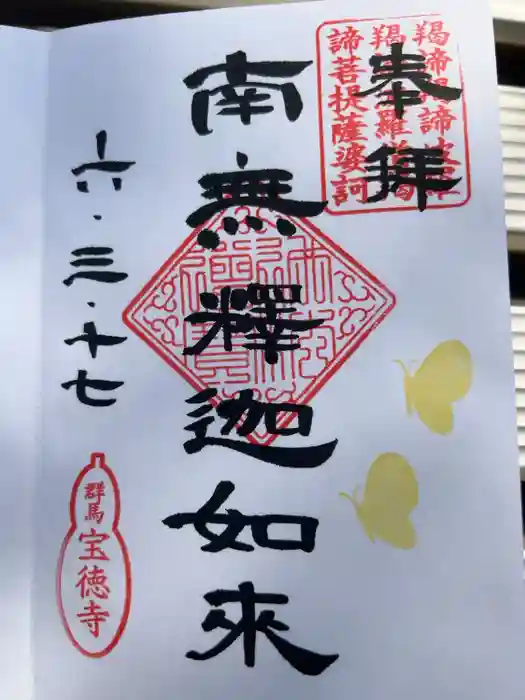 奉拝
羯諦羯諦波羅
羯諦波羅僧羯
諦菩提薩婆訶
南無釋迦如來
六・三・十七
群馬
宝徳寺